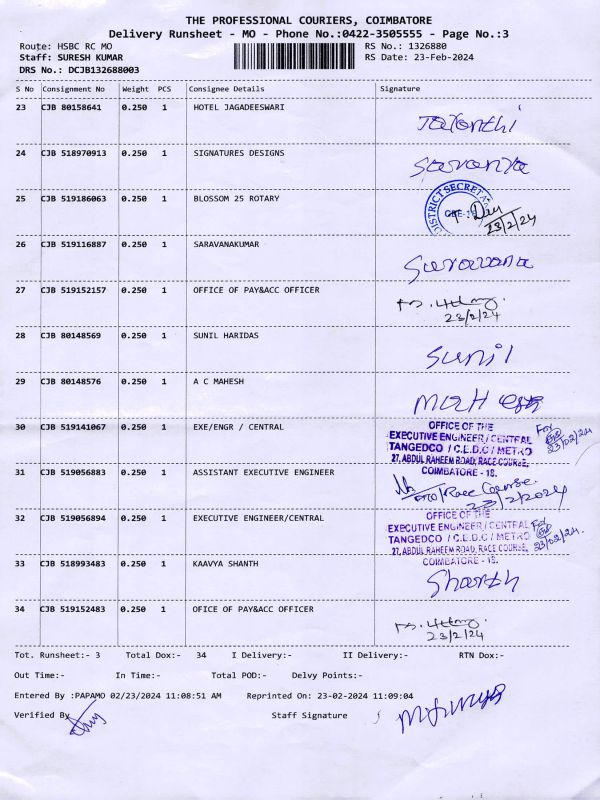 THE PROFESSIONAL COURIERS, COIMBATORE
Delivery Runsheet - MO - Phone No.:0422-3505555 - Page No.:3
Route: HSBC RC MO RS No.: 1326880
Staff: SURESH KUMAR RS Date: 23-Feb-2024
DRS No.: DCJB132688003
S No Consignment No Weight PCS Consignee Details Signature
23 CJB 80158641 0.250 1 HOTEL JAGADEESWARI
Jayanthi
24 CJB 518970913 0.250 1 SIGNATURES DESIGNS
Saranya
25 CJB 519186063 0.250 1 BLOSSOM 25 ROTARY
DISTRICT SECRETA
23/2/24
26 CJB 519116887 0.250 1 SARAVANAKUMAR
Saravana
27 CJB 519152157 0.250 1 OFFICE OF PAY&ACC OFFICER
23/2/24
28 CJB 80148569 0.250 1 SUNIL HARIDAS
Sunil
29 CJB 80148576 0.250 1 A C MAHESH
Mahesh
30 CJB 519141067 0.250 1 EXE/ENGR / CENTRAL
OFFICE OF THE
EXECUTIVE ENGINEER / CENTRAL
TANGEDCO / C.E.D.C / METRO
27, ABDUL RAHEEM ROAD, RACE COURSE,
COIMBATORE - 18.
For
23/02/24
31 CJB 519056883 0.250 1 ASSISTANT EXECUTIVE ENGINEER
Race Course.
23/2/2024
32 CJB 519056894 0.250 1 EXECUTIVE ENGINEER/CENTRAL
OFFICE OF THE
EXECUTIVE ENGINEER / CENTRAL
TANGEDCO / C.E.D.C / METRO
27, ABDUL RAHEEM ROAD, RACE COURSE,
COIMBATORE - 18.
For
23/02/24.
33 CJB 518993483 0.250 1 KAAVYA SHANTH
Shanth
34 CJB 519152483 0.250 1 OFICE OF PAY&ACC OFFICER
23/2/24
Tot. Runsheet:- 3 Total Dox:- 34 I Delivery:- II Delivery:- RTN Dox:-
Out Time:- In Time:- Total POD:- Delvy Points:-
Entered By :PAPAMO 02/23/2024 11:08:51 AM Reprinted On: 23-02-2024 11:09:04
Verified By Staff Signature